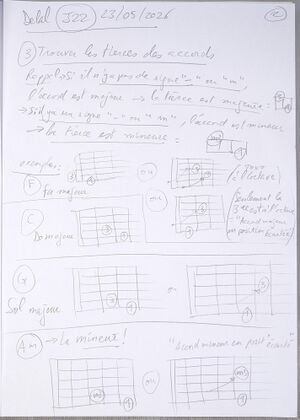 Delal J22 23/05/2026 2
③ Trouver les tierces des accords
Rappel : Si il n'y a pas de signe "-" ou "m",
l'accord est majeur → la tierce est majeure =
→ Si il y a un signe "-" ou "m", l'accord est mineur
→ la tierce est mineure =
exemples :
F ou
Fa majeur
l'octave
C ou
Do majeur
Seulement la
3ce à l'octave
"Accord majeur
en position
écartée"
G ou
Sol majeur
Am → La mineur !
"Accord mineur en posit° écarté"
m3 ou m3